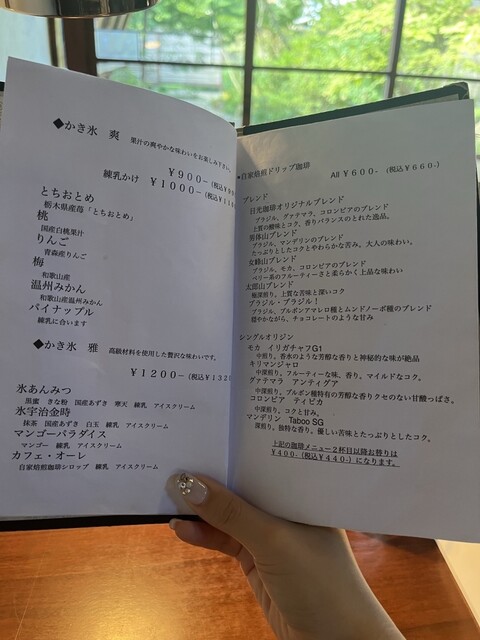 ◆かき氷 爽 果汁の爽やかな味わいをお楽しみ下さい。
￥900-
練乳かけ ￥1000-
とちおとめ
栃木県産苺「とちおとめ」
桃
国産白桃果汁
りんご
青森産りんご
梅
和歌山産
温州みかん
和歌山産温州みかん
パイナップル
練乳に合います
◆かき氷 雅 高級材料を使用した贅沢な味わいです。
￥1200-（税込￥132
氷あんみつ
黒蜜 きな粉 国産あずき 寒天 練乳 アイスクリーム
氷宇治金時
抹茶 国産あずき 白玉 練乳 アイスクリーム
マンゴーパラダイス
マンゴー 練乳 アイスクリーム
カフェ・オーレ
自家焙煎珈琲シロップ 練乳 アイスクリーム
◆自家焙煎ドリップ珈琲 All ￥600-（税込￥660-）
ブレンド
日光珈琲オリジナルブレンド
ブラジル、グァテマラ、コロンビアのブレンド
上質の酸味とコク、香りバランスのとれた逸品。
男体山ブレンド
ブラジル、マンデリンのブレンド
たっぷりとしたコクとやわらかな苦み。大人の味わい。
女峰山ブレンド
ブラジル、モカ、コロンビアのブレンド
ベリー系のフルーティーさと柔らかく上品な味わい
太郎山ブレンド
極深煎り、上質な苦味と深いコク
ブラジル・ブラジル！
ブラジル、ブルボンアマレロ種とムンドノーボ種のブレンド
穏やかながら、チョコレートのような甘み
シングルオリジン
モカ イリガチャフG1
中煎り、香水のような芳醇な香りと神秘的な味が絶品
キリマンジャロ
中深煎り、フルーティーな味、香り。マイルドなコク。
グァテマラ アンティグア
中深煎り、ブルボン種特有の芳醇な香りクセのない甘酸っぱさ。
コロンビア ティピカ
中深煎り、コクと甘み。
マンデリン Taboo SG
深煎り、独特な香り、優しい苦味とたっぷりとしたコク。
上記の珈琲メニュー２杯目以降お替りは
￥400-（税込￥440-）になります。